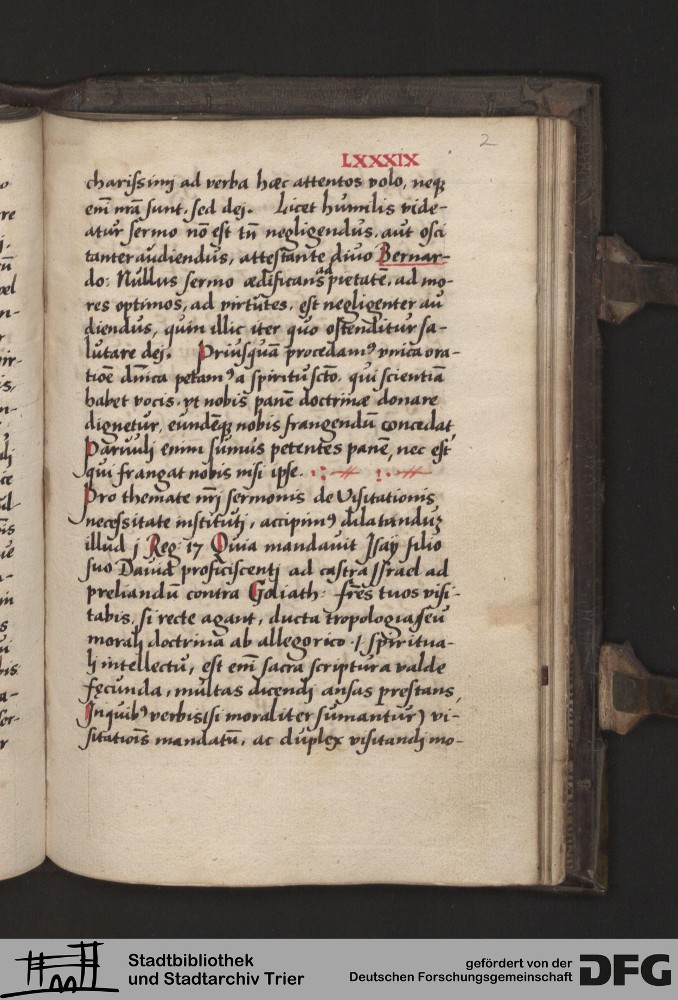 2
LXXXIX
charissimj ad verba hæc attentos volo, neqꝫ
em̄ nr̄a sunt, sed dej. Licet humilis vide-
atur sermo nō est tn̄ negligendus, aut osci
tanter audiendus, attestante diuo Bernar-
do: Nullus sermo ædificans ad pietatē, ad mo-
res optimos, ad virtutes, est negligenter au
diendus, quin illic iter quo ostenditur sa-
lutare dej. Priusquā procedamꝰ vnica ora-
tiōe dn̄ica petamꝰ a spiritu sc̄to, qui scientiā
habet vocis, vt nobis panē doctrinæ donare
dignetur, eundēqꝫ nobis frangendū concedat,
Paruuli enim sumus petentes panē, nec est
qui frangat nobis nisi ipse.
Pro themate nr̄j sermonis de Visitationis
necessitate institutj, accipimꝰ dilatanduꝫ
illud j Reg: 17 Quia mandauit Jsaÿ filio
suo Dauid proficiscentj ad castra Jsrael ad
preliandū contra Goliath: fr̄es tuos visi-
tabis, si recte agant, ducta tropologia seu
moralj doctrina ab allegorico .i. spiritua-
lj intellectu, est em̄ sacra scriptura valde
fęcunda, multas dicendj ansas prestans,
Jn quibꝰ verbis (si moraliter sumantur) vi-
sitatiōis mandatū, ac duplex visitandj mo-
Stadtbibliothek
und Stadtarchiv Trier
gefördert von der
Deutschen Forschungsgemeinschaft
DFG